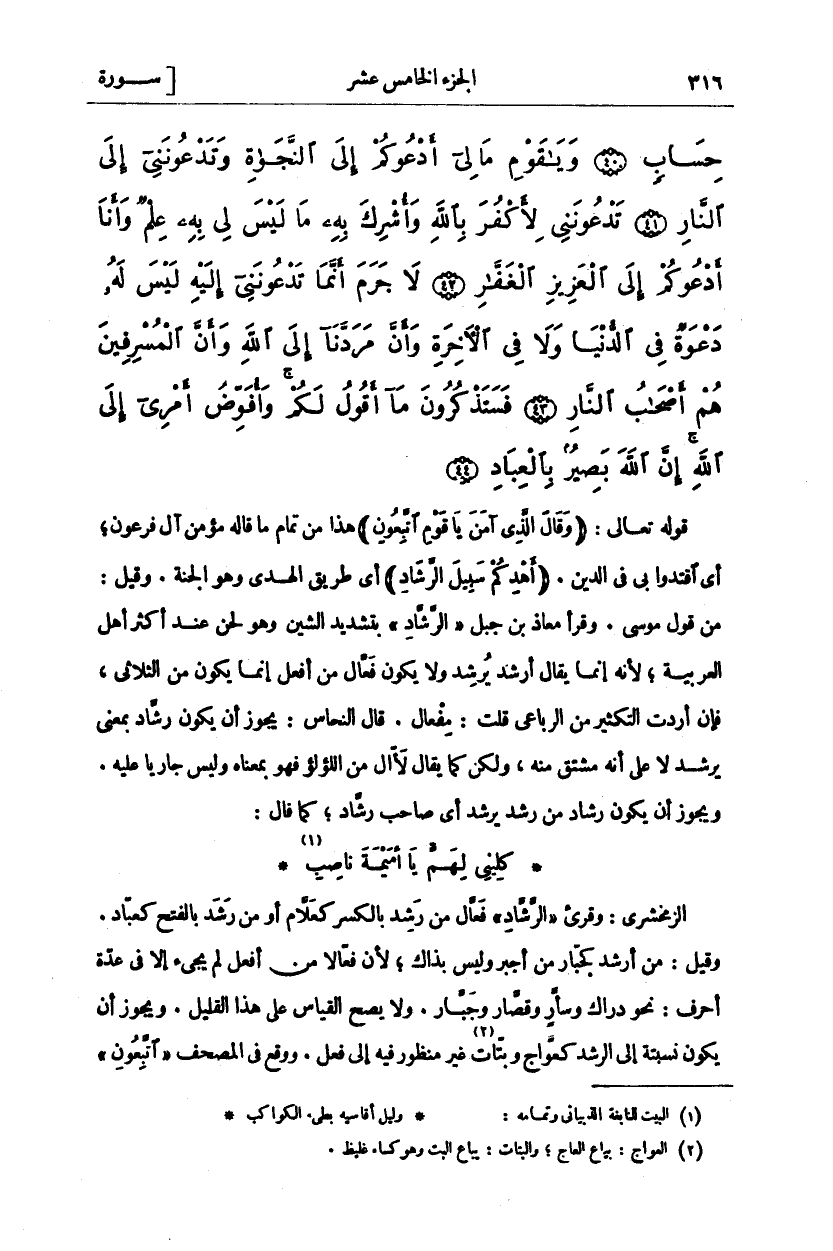 ٣١٦ الجزء الخامس عشر [ ســـورة
حِسَابٍ ﴿٤٠﴾ وَيَٰقَوْمِ مَا لِىٓ أَدْعُوكُمْ إِلَى ٱلنَّجَوٰةِ وَتَدْعُونَنِىٓ إِلَى
ٱلنَّارِ ﴿٤١﴾ تَدْعُونَنِى لِأَكْفُرَ بِٱللَّهِ وَأُشْرِكَ بِهِۦ مَا لَيْسَ لِى بِهِۦ عِلْمٌ وَأَنَا۠
أَدْعُوكُمْ إِلَى ٱلْعَزِيزِ ٱلْغَفَّٰرِ ﴿٤٢﴾ لَا جَرَمَ أَنَّمَا تَدْعُونَنِىٓ إِلَيْهِ لَيْسَ لَهُۥ
دَعْوَةٌ فِى ٱلدُّنْيَا وَلَا فِى ٱلْأٓخِرَةِ وَأَنَّ مَرَدَّنَآ إِلَى ٱللَّهِ وَأَنَّ ٱلْمُسْرِفِينَ
هُمْ أَصْحَٰبُ ٱلنَّارِ ﴿٤٣﴾ فَسَتَذْكُرُونَ مَآ أَقُولُ لَكُمْ ۚ وَأُفَوِّضُ أَمْرِىٓ إِلَى
ٱللَّهِ ۚ إِنَّ ٱللَّهَ بَصِيرٌۢ بِٱلْعِبَادِ ﴿٤٤﴾
قوله تعـالى : ﴿وَقَالَ الَّذِى آمَنَ يَا قَوْمِ ٱتَّبِعُونِ﴾ هذا من تمام ما قاله مؤمن آل فرعون؛
أى ٱقتدوا بى فى الدين . ﴿أَهْدِكُمْ سَبِيلَ الرَّشَادِ﴾ أى طريق الهـدى وهو الجنة . وقيل :
من قول موسى . وقرأ معاذ بن جبل « الرَّشَّادِ » بتشديد الشين وهو لحن عنـد أكثر أهل
العربيـة ؛ لأنه إنمـا يقال أرشد يُرشِد ولا يكون فَعَّال من أفعل إنمـا يكون من الثلاثى ،
فإن أردت التكثير من الرباعى قلت : مِفْعال . قال النحاس : يجوز أن يكون رشّاد بمعنى
يرشـد لا على أنه مشتق منه ، ولكن كما يقال لَأّال من اللؤلؤ فهو بمعناه وليس جاريا عليه .
ويجوز أن يكون رشاد من رشد يرشد أى صاحب رشَّاد ؛ كما قال :
* كِلِينِى لِهَـمٍّ يَا أُمَيْمَـةَ ناصِبِ (١) *
الزمخشرى : وقرئ «الرَّشَّادِ» فَعَّال من رَشِد بالكسر كعَلَّام أو من رَشَد بالفتح كعبّاد .
وقيل : من أرشد كجَبّار من أجبر وليس بذاك ؛ لأن فعّالا من أفعل لم يجىء إلا فى عدّة
أحرف : نحو دراك وسأّر وقصّار وجَبَّار . ولا يصح القياس على هذا القليل . ويجوز أن
يكون نسبتة إلى الرشد كعوَّاج وبتّات (٢) غير منظور فيه إلى فعل . ووقع فى المصحف « ٱتَّبِعُونِ »
(١) البيت للنابغة الذبيانى وتمـامه : * وليل أقاسيه بطىء الكواكب *
(٢) العواج : بياع العاج ؛ والبتات : يباع البت وهو كساء غليظ .